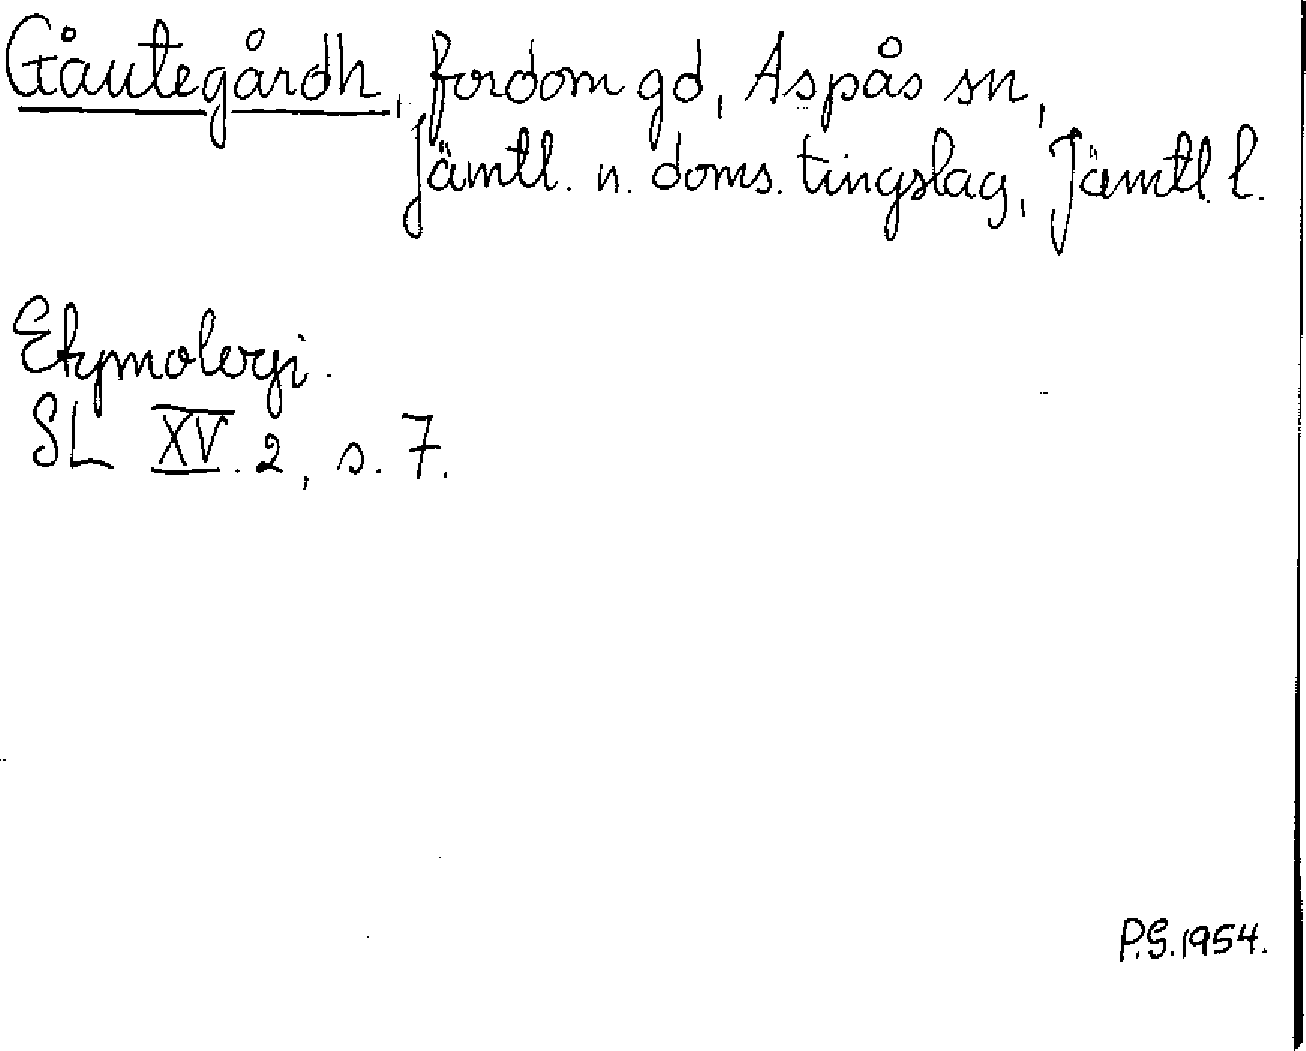 Gåutegårdh, fordom gd, Aspås sn,
Jämtl. n. doms. tingslag, Jämtl. l.
Etymologi.
SL XV.2, s. 7.
P.S. 1954.